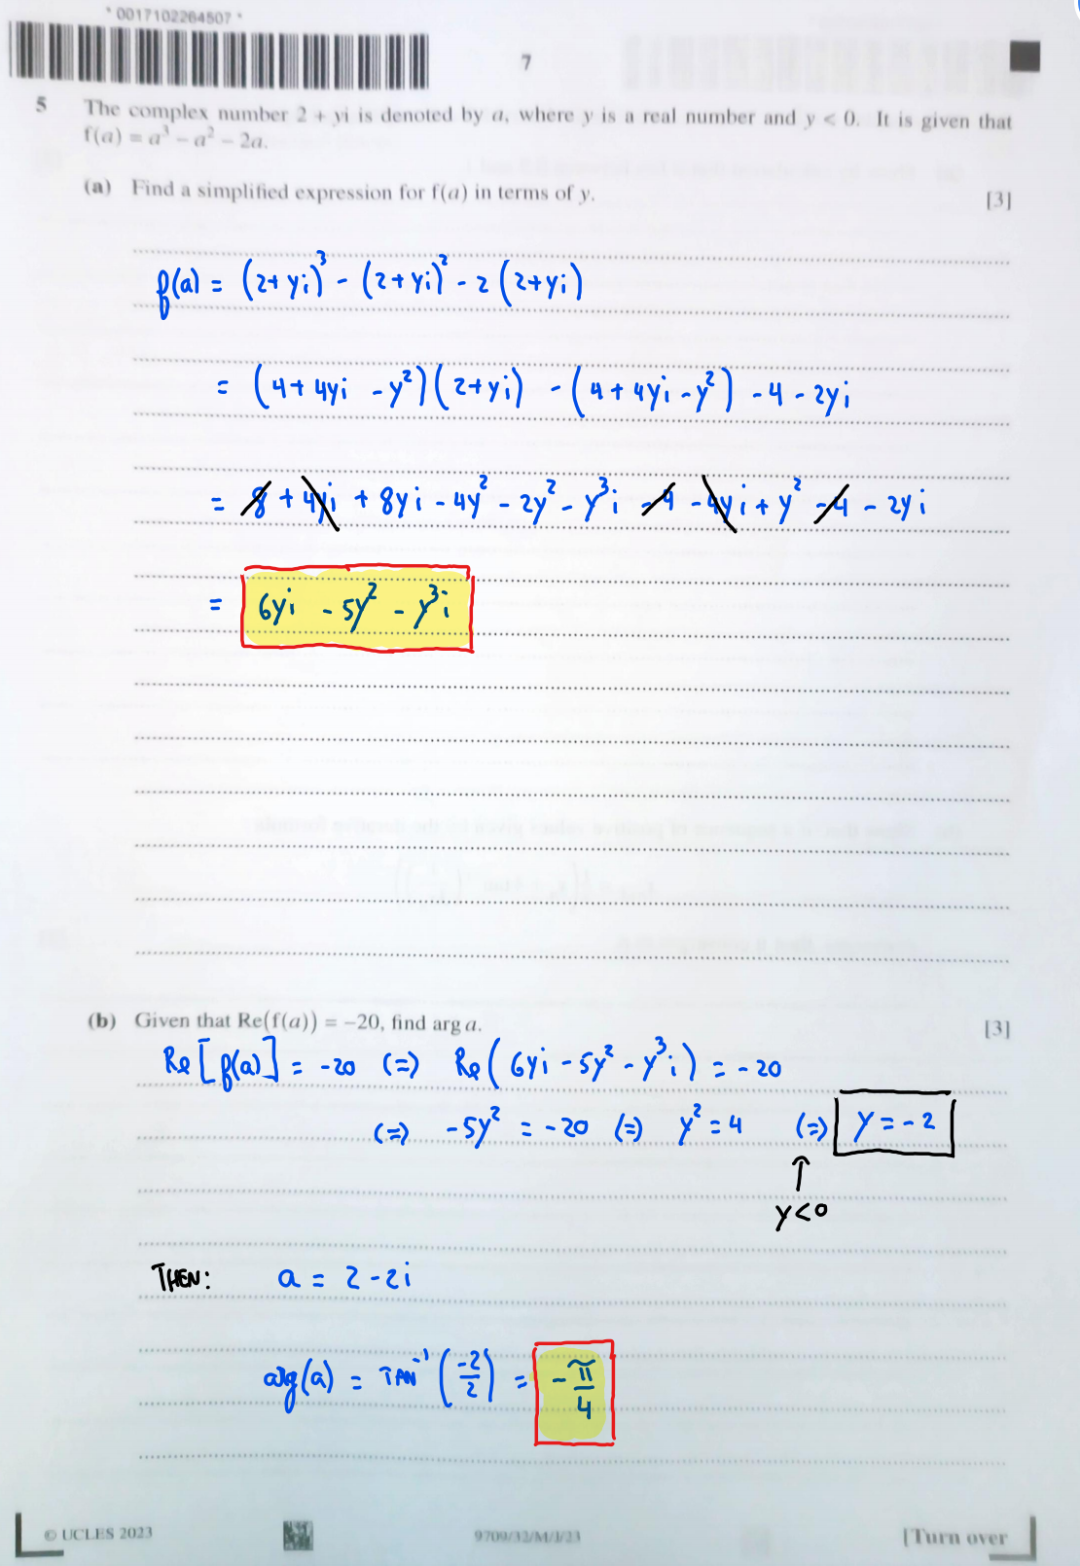 * 0017102264507 *
7
5 The complex number 2 + yi is denoted by a, where y is a real number and y < 0. It is given that
f(a) = a³ − a² − 2a.
(a) Find a simplified expression for f(a) in terms of y. [3]
f(a) = (2+yi)³ - (2+yi)² - 2(2+yi)
= (4+4yi -y²)(2+yi) - (4+4yi-y²) - 4 - 2yi
= 8 + 4yi + 8yi - 4y² - 2y² - y³i - 4 - 4yi + y² - 4 - 2yi
= 6yi - 5y² - y³i
(b) Given that Re(f(a)) = −20, find arg a. [3]
Re[f(a)] = -20 (=) Re(6yi - 5y² - y³i) = -20
(=) -5y² = -20 (=) y² = 4 (=) y = -2
↑
y<0
THEN: a = 2 - 2i
arg(a) = TAN⁻¹(-2/2) = -π/4
© UCLES 2023 9709/32/M/J/23 [Turn over